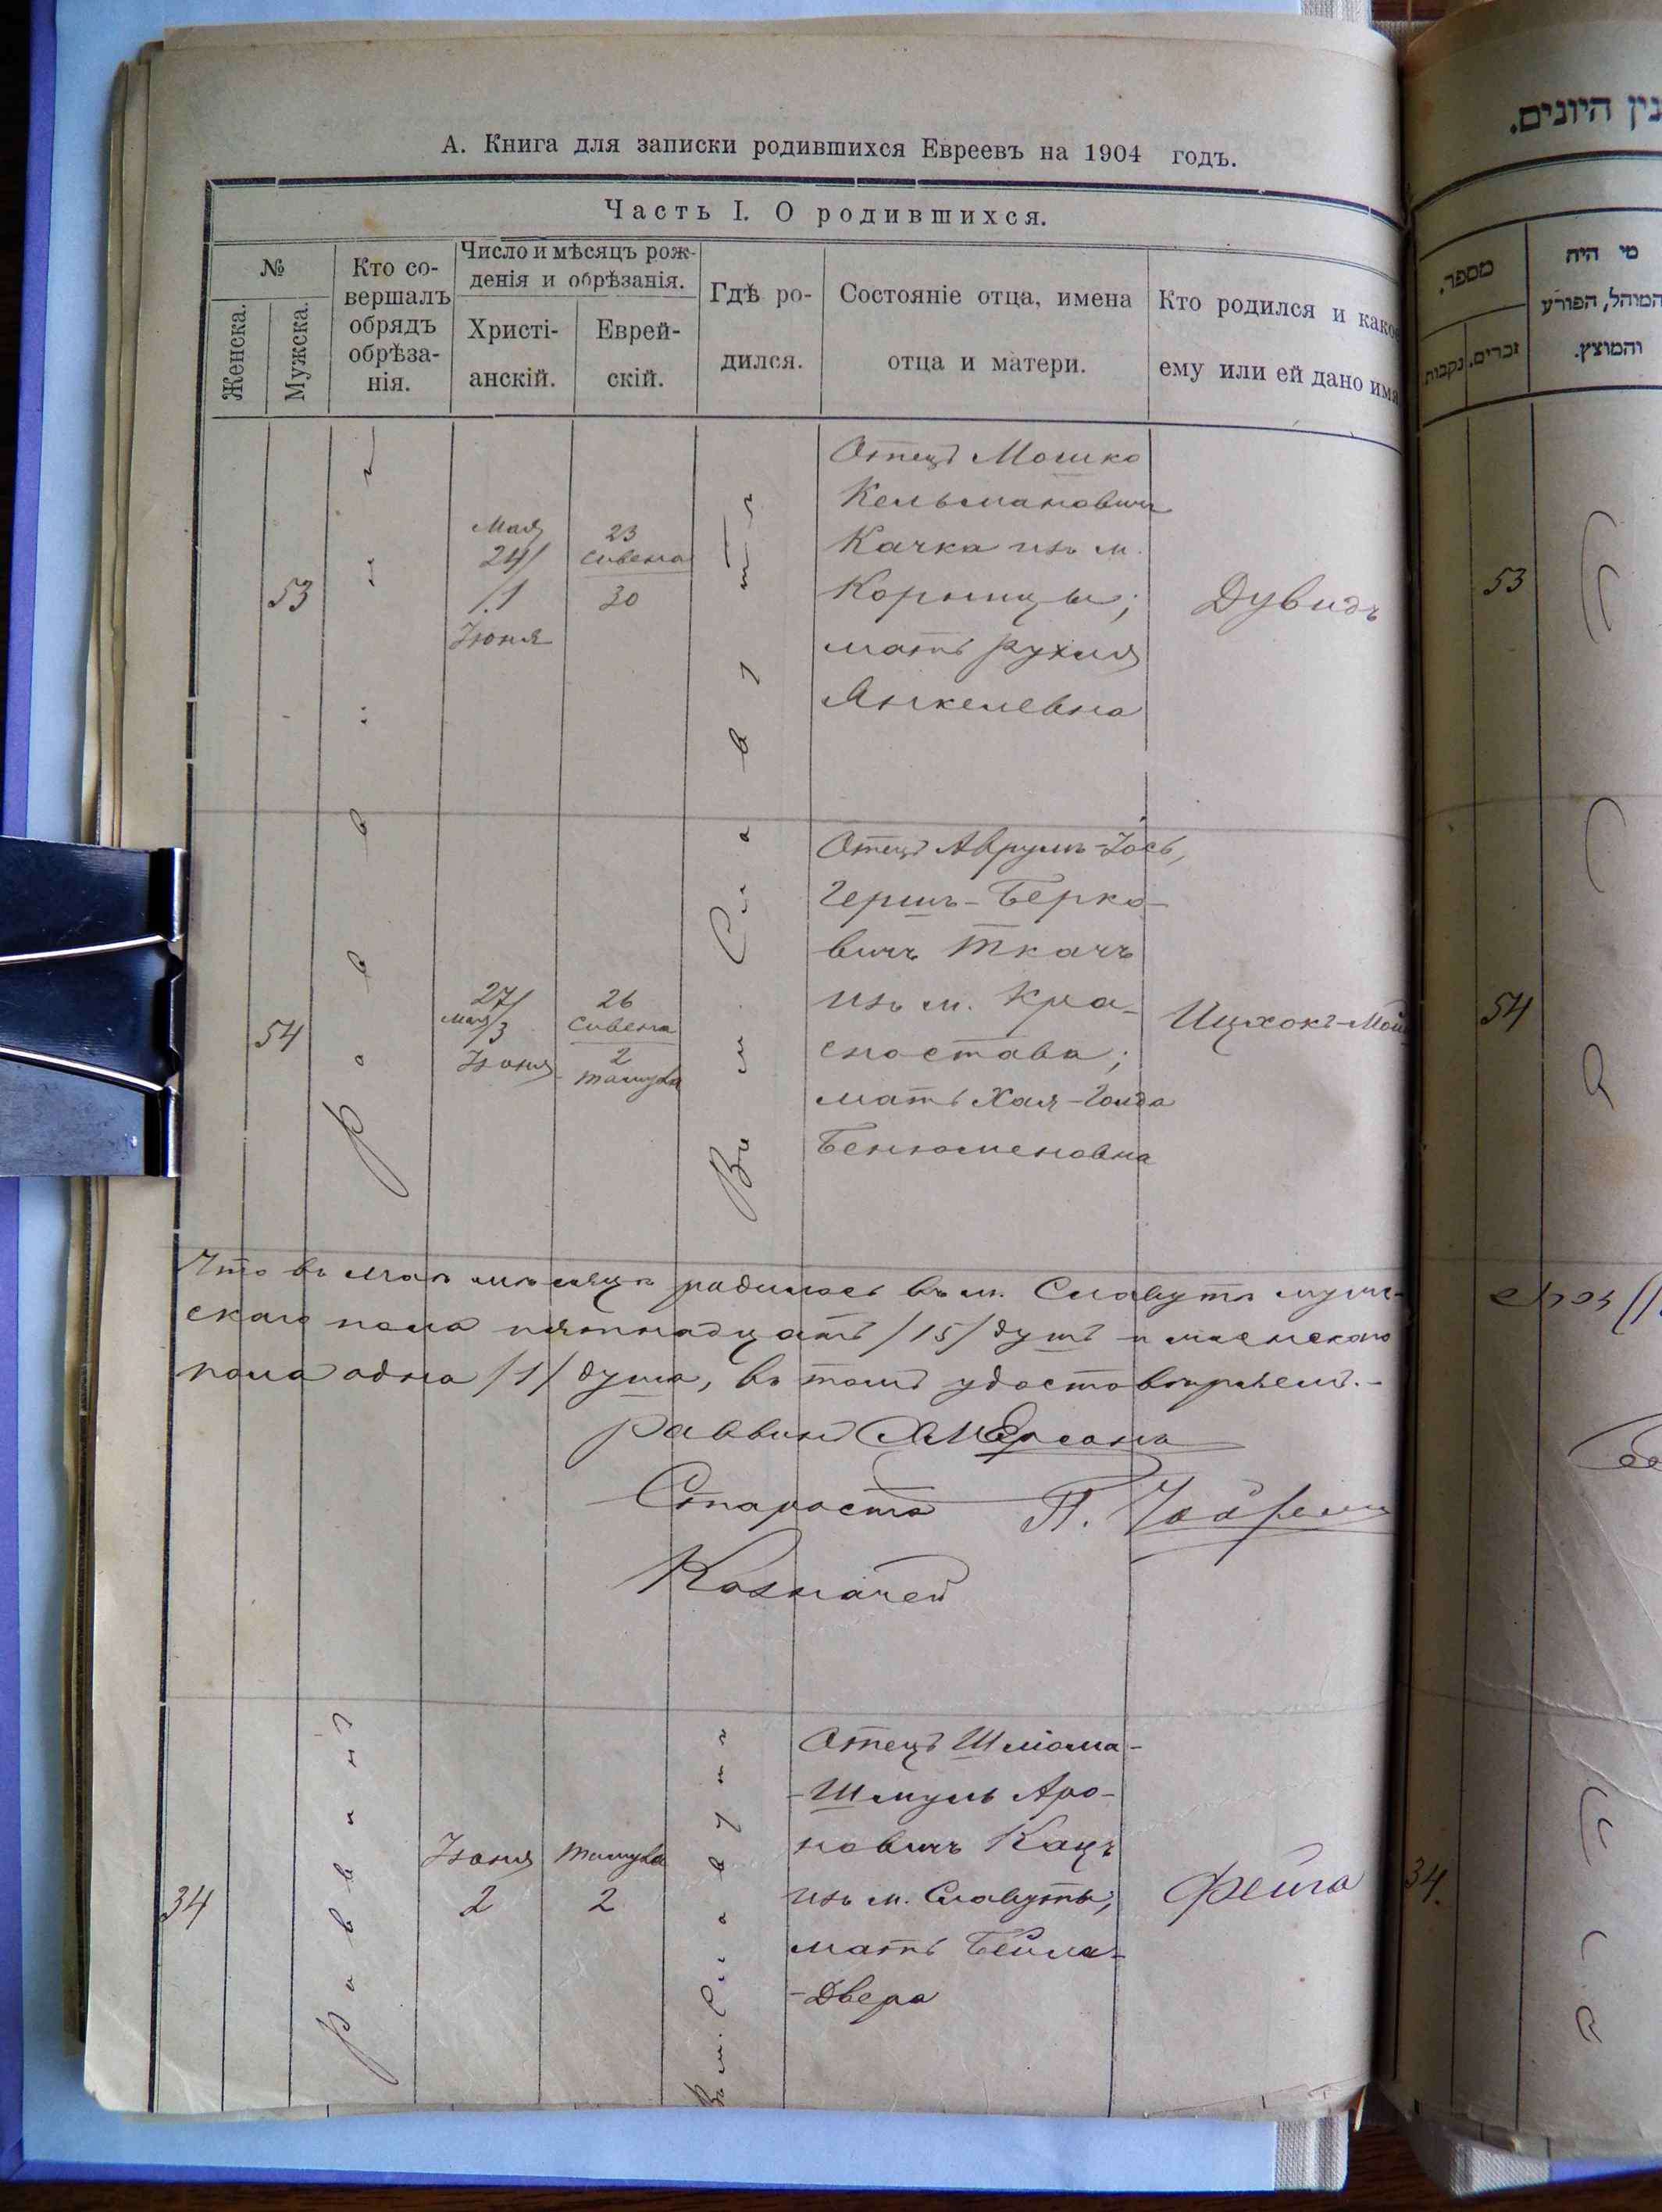 А. Книга для записки родившихся Евреевъ на 1904 годъ.
Часть I. О родившихся.
№
Женска.
Мужска.
Кто со-
вершалъ
обрядъ
обрѣза-
нія.
Число и мѣсяцъ рож-
денія и обрѣзанія.
Христі-
анскій.
Еврей-
скій.
Гдѣ ро-
дился.
Состояніе отца, имена
отца и матери.
Кто родился и какое
ему или ей дано имя
53
Раввинъ
Мая
24/
/1
Іюня
23
Сивена
30
Въ м. Славутѣ
Отецъ Мошко
Кельмановичъ
Качка изъ м.
Корницы;
мать Рухля
Янкелевна
Дувидъ
54
27/
Мая/3
Іюня
26
Сивена
2
Тамуза
Отецъ Аврумъ-Іось,
Гершъ-Берко-
вичъ Ткачъ
изъ м. Кра-
сностава;
мать Хая-Голда
Бенюменовна
Ицхокъ-Мош
Что въ маѣ мѣсяцѣ родилось въ м. Славутѣ муже-
скаго пола пятнадцать /15/ душъ и женскаго
пола одна /1/ душа, въ томъ удостовѣряемъ.-
Раввинъ
Староста П.
Казначей
34
Раввинъ
Іюня
2
Тамуза
2
Въ м. Славутѣ
Отецъ Шліома-
-Шмуль Аро-
новичъ Кацъ
изъ м. Славуты,
мать Бейла-
-Двера
Фейга
נין היונים.
מספר.
זכרים.
נקבות
מי היה
המוהל, הפורע
והמוצץ.
53
54
34.